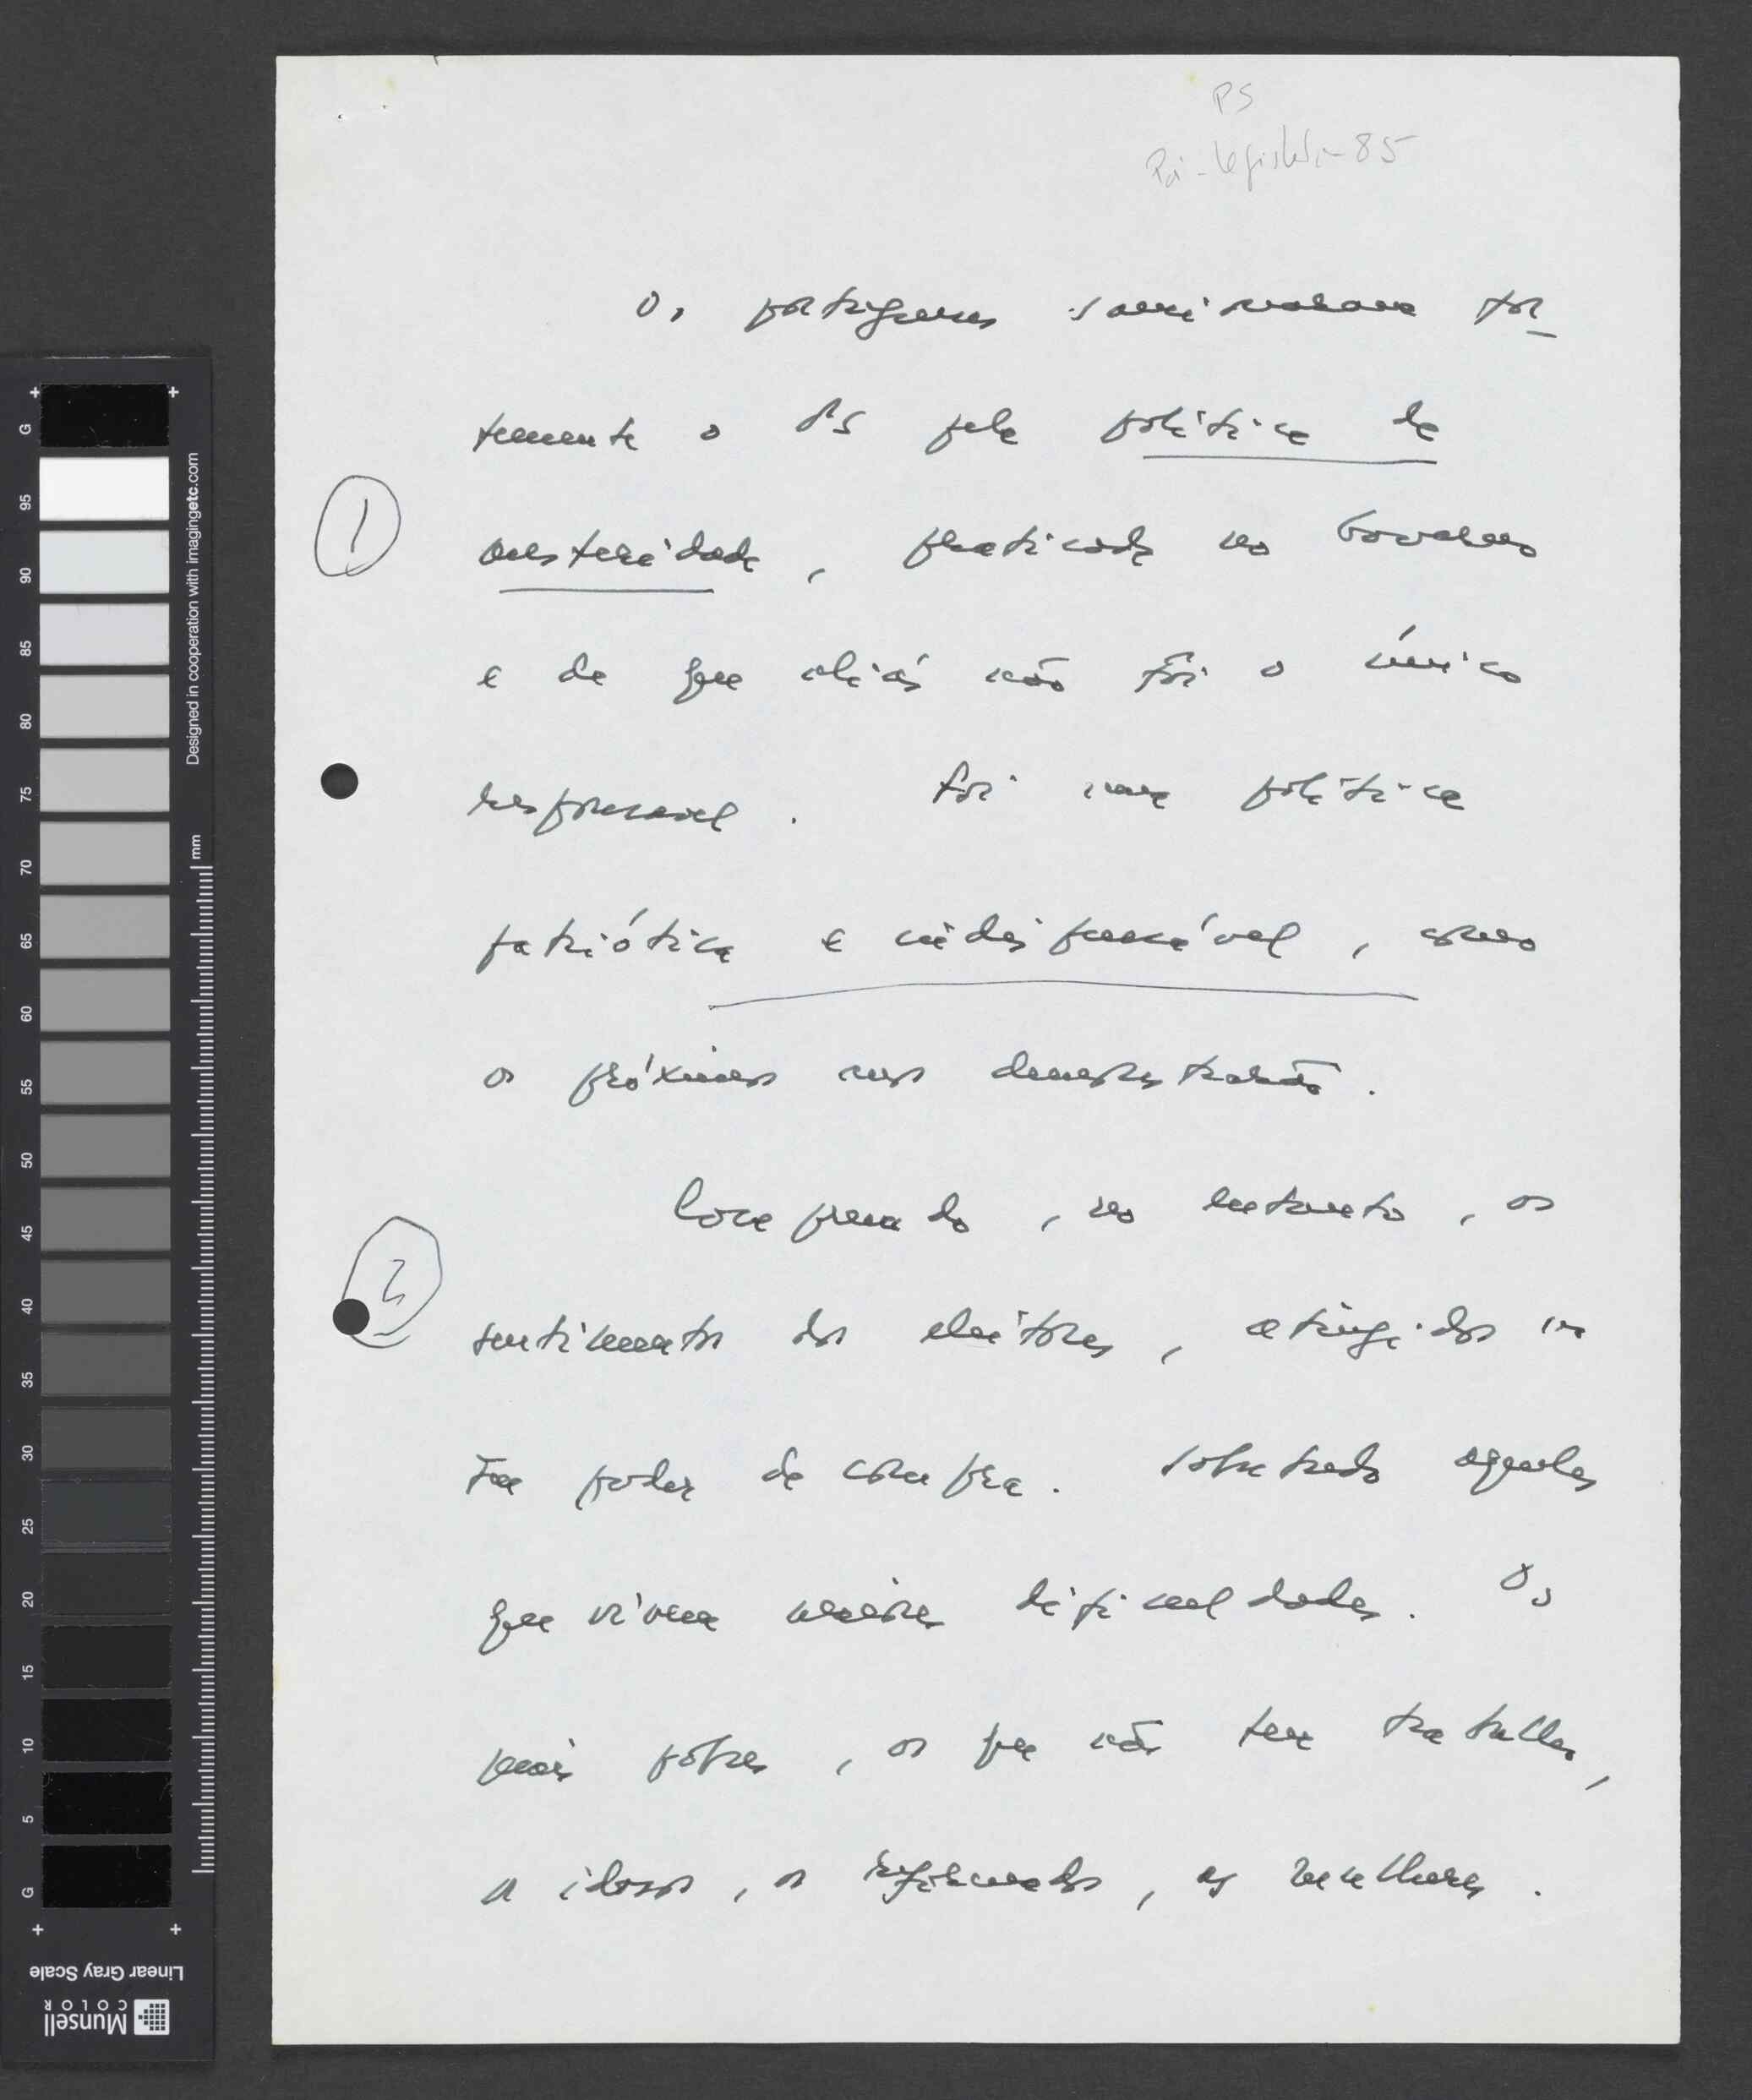 PS
Pós-legislativas-85
Os portugueses sancionaram for-
temente o PS pela política de
① austeridade, praticada no Governo
e de que aliás não foi o único
responsável. Foi uma política
patriótica e indispensável, como
os próximos anos demonstrarão.
Compreendo, no entanto, os
② sentimentos dos eleitores, atingidos no
seu poder de compra. Sobretudo aqueles
que vivem maiores dificuldades. Os
mais pobres, os que não tem trabalho,
os idosos, os reformados, as mulheres.
G
95
90
85
80
75
70
65
60
55
50
45
40
35
30
25
20
15
10
5
G
mm
Designed in cooperation with imagingetc.com
Linear Gray Scale
Munsell
COLOR